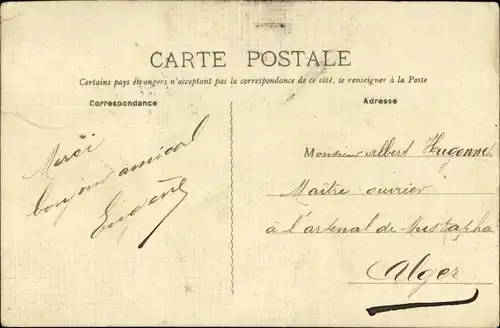 CARTE POSTALE
Certains pays étrangers n'acceptant pas la correspondance de ce côté, se renseigner à la Poste
Correspondance
Adresse
Merci
bonjour amical
Eugène
Monsieur Albert Hugonnet
Maître ouvrier
à l'arsenal de Mustapha
Alger